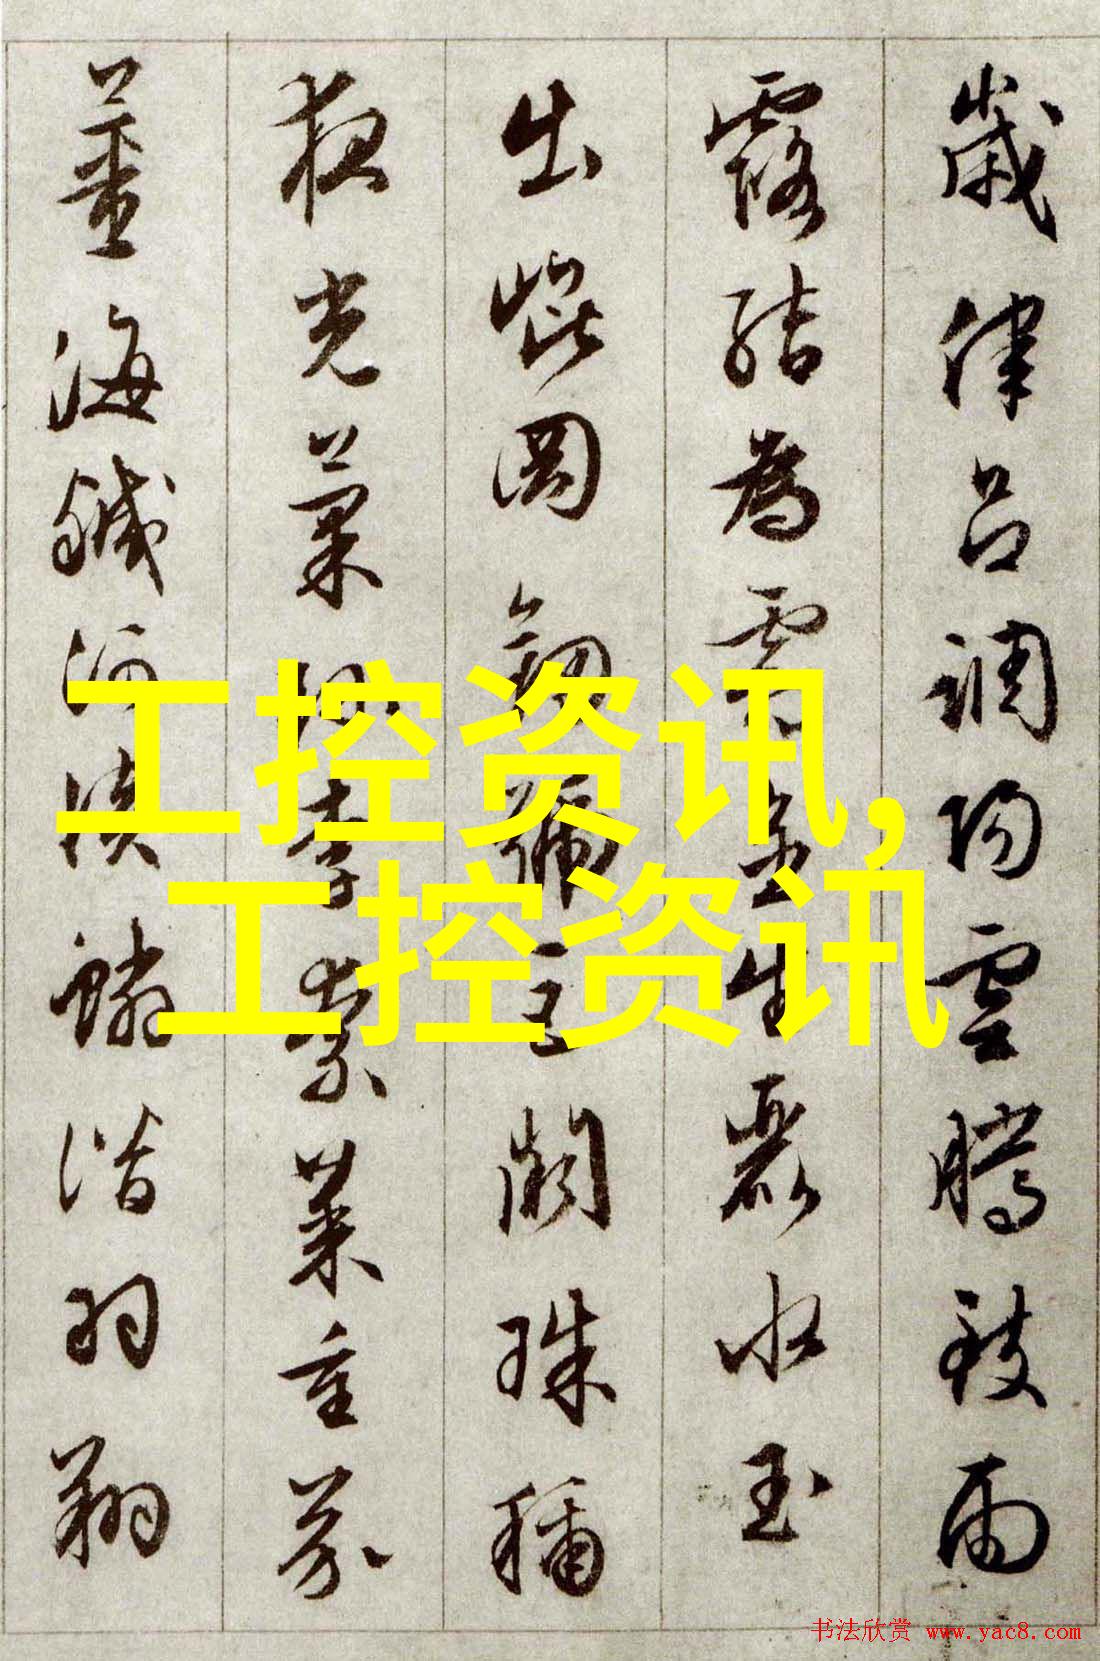 歲律呂調陽雲騰致雨
露結為霜金生麗水玉
出崐岡劒號巨闕珠稱
夜光菓珎李柰菜重芥
薑海鹹河淡鱗潛羽翔
工控资讯,
工控资讯
书法欣赏 www.yac8.com